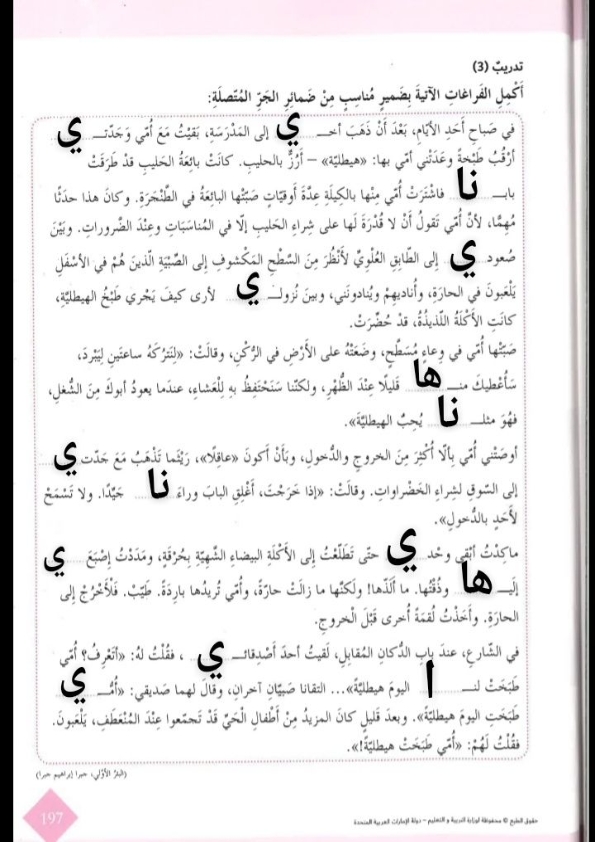 تدريبٌ (3)
أَكْمِلِ الفَراغاتِ الآتيةَ بِضَميرٍ مُناسِبٍ مِنْ ضَمائِرِ الجَرِّ المُتّصلَةِ:
في صَباحِ أَحَدِ الأيّامِ، بَعْدَ أَنْ ذَهَبَ أخـ ي إلى المَدْرَسَةِ، بَقيْتُ مَعَ أُمّي وَجَدّتـ ي
أَرْقُبُ طَبْخةً وعَدَتْني أمّي بها: «هيطليّة» – أَرُزٌّ بالحليبِ. كانَتْ بائِعَةُ الحَليبِ قدْ طَرَقَتْ
بابـ نا فاشْتَرَتْ أُمّي مِنْها بالكِيلَةِ عِدَّةَ أوقيّاتٍ صَبّتْها البائعَةُ في الطَّنْجَرَةِ. وكانَ هذا حدَثًا
مُهِمًّا، لأنّ أُمّي تَقولُ أَنْ لا قُدْرَةَ لَها على شِراءِ الحَليبِ إلّا في المُناسَبَاتِ وعِنْدَ الضّروراتِ. وبَيْنَ
صُعود ي إلى الطّابِقِ العُلْوِيِّ لأَنْظُرَ مِنَ السَّطْحِ المَكْشوفِ إلى الصِّبْيَةِ الّذينَ هُمْ في الأسْفَلِ
يَلْعَبونَ في الحارَةِ، وأُناديهِمْ ويُنادونَني، وبينَ نُزولـ ي لأرى كيفَ يَجْري طَبْخُ الهيطليّةِ،
كانَتِ الأَكْلَةُ اللّذيذُةُ، قدْ حُضّرَتْ.
صَبّتْها أُمّي في وِعاءٍ مُسَطَّحٍ، وضَعَتْهُ على الأَرْضِ في الرُّكْنِ، وقالَتْ: «لِنَتركُهُ ساعتَينِ لِيَبْردَ،
سَأُعْطيكَ منـ ها قليلًا عِنْدَ الظُّهْرِ، ولكنّنا سَنَحْتَفِظُ بهِ لِلْعَشاءِ، عندَما يعودُ أبوكَ مِنَ الشُّغلِ،
فهُوَ مثلـ نا يُحِبُّ الهيطليّةَ».
أوصَتْني أُمّي بألّا أُكْثِرَ مِنَ الخروجِ والدُّخولِ، وبَأَنْ أكونَ «عاقِلًا»، رَيْثَما تَذْهَبُ مَعَ جَدّت ي
إلى السّوقِ لشِراءِ الخَضْراواتِ. وقالَتْ: «إذا خَرَجْتَ، أَغْلِقِ البابَ وراءَ نا جَيّدًا. ولا تَسْمَحْ
لأَحَدٍ بالدُّخولِ».
ماكِدْتُ أَبْقى وحْد ي حتّى تَطَلّعْتُ إلى الأَكْلَةِ البيضاءِ الشّهيّةِ بِحُرْقَةٍ، ومَدَدْتُ إصْبَعَ ي
إلَيـ ها وذُقْتُها. ما أَلَذَّها! ولَكنّها ما زالَتْ حارّةً، وأُمّي تُريدُها بارِدَةً. طَيّبٌ. فَلْأَخْرُجْ إلى
الحارَةِ. وأَخَذْتُ لُقمَةً أُخرى قَبْلَ الْخروجِ.
في الشّارعِ، عندَ بابِ الدُّكانِ المُقابِلِ، لَقيتُ أحدَ أَصْدِقائـ ي ، فقُلْتُ لهُ: «أتَعْرِفُ؟ أُمّي
طَبَخَتْ لنـ ا اليومَ هيطليّةً»... التقانا صَبِيّانِ آخرانِ، وقالَ لهما صَديقي: «أُمُّـ ي
طَبَخَتِ اليومَ هيطليّةً». وبعدَ قليلٍ كانَ المزيدُ مِنْ أَطْفالِ الْحَيِّ قَدْ تَجمّعوا عِنْدَ المُنْعَطَفِ، يَلْعَبونَ.
فقُلْتُ لَهُمْ: «أُمّي طَبَخَتْ هيطليّةً!».
(البئرُ الأوّلي، جبرا إبراهيم جبرا)
حقوق الطبع © محفوظة لوزارة التربية و التعليم – دولة الإمارات العربية المتحدة
197